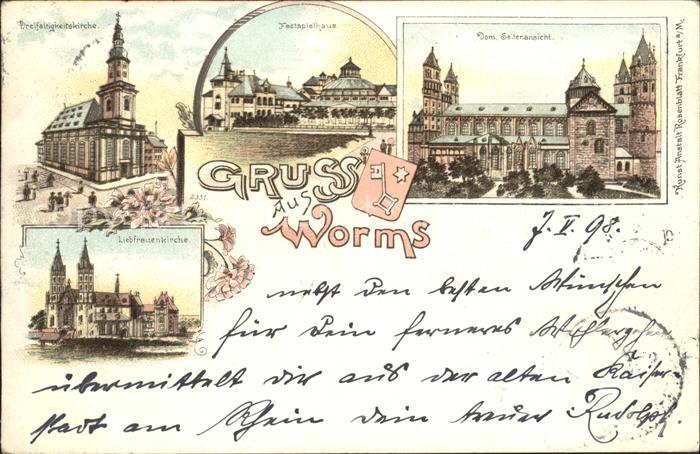 Dreifaltigkeitskirche.
Festspielhaus.
Dom, Seitenansicht.
Kunst Anstalt Rosenblatt Frankfurt a/M.
GRUSS
AUS
WORMS
2331.
Liebfrauenkirche.
7. I. 98.
nebst den besten Wünschen
für Dein ferneres Wohlergehen
übermittelt dir aus der alten Kaiser-
stadt am Rhein dein treuer Rudolph.